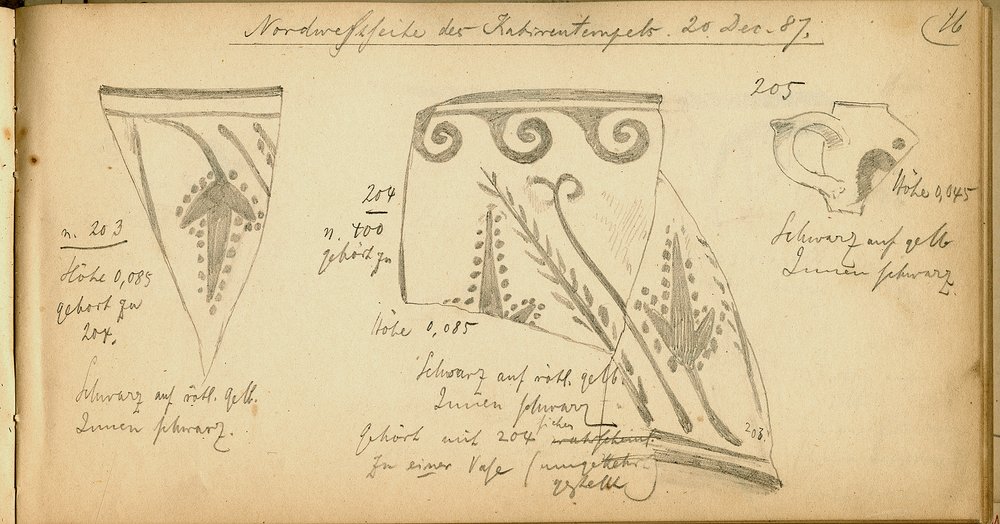 Nordwestseite des Kabirentempels. 20 Dec. 87.
16
n. 203
Höhe 0,085
gehört zu
204.
Schwarz auf rötl. gelb.
Innen schwarz.
204
n. 100
gehört zu
Höhe 0,085
Schwarz auf rötl. gelb.
Innen schwarz
Gehört mit 204 sicher wahrscheinl.
zu einer Vase (umgekehrt
gestellt
203.
205
Höhe 0,045
Schwarz auf gelb
Innen schwarz.